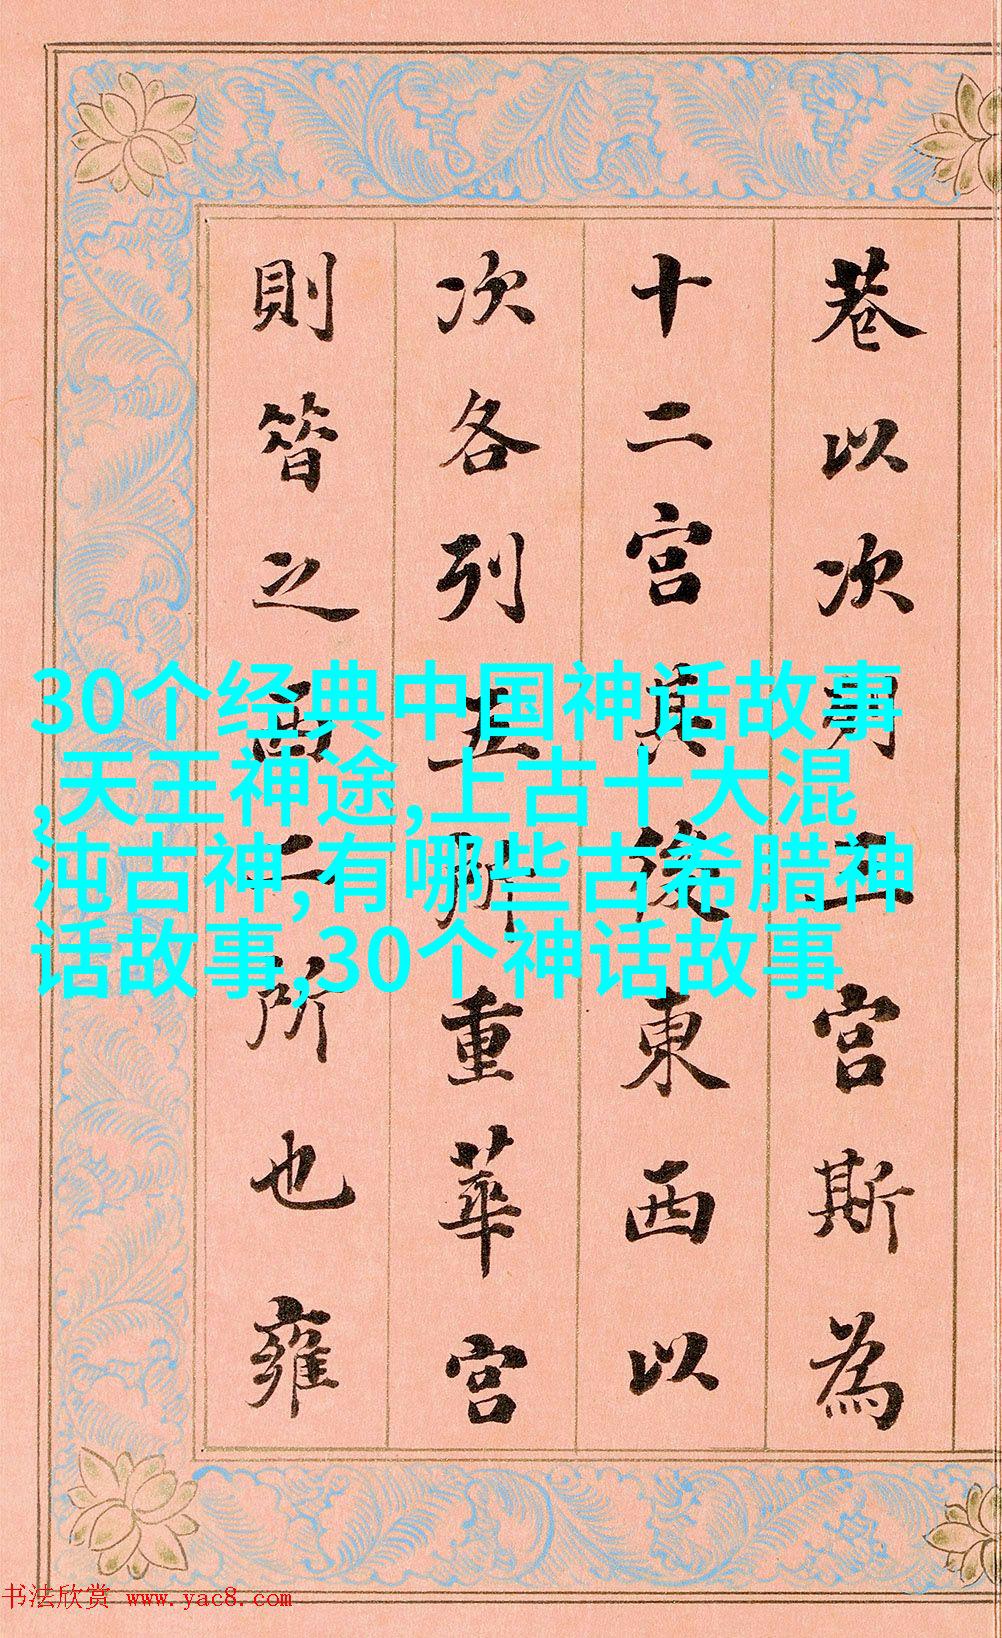 巷以次五宮斯為
十二宮其後東西以
次各列五所重華宮
則昔之西二所也雍
30个经典中国神话故事
,天王神途,上古十大混
沌古神,有哪些古希腊神
话故事,30个神话故事
书法欣赏 www.yac8.com